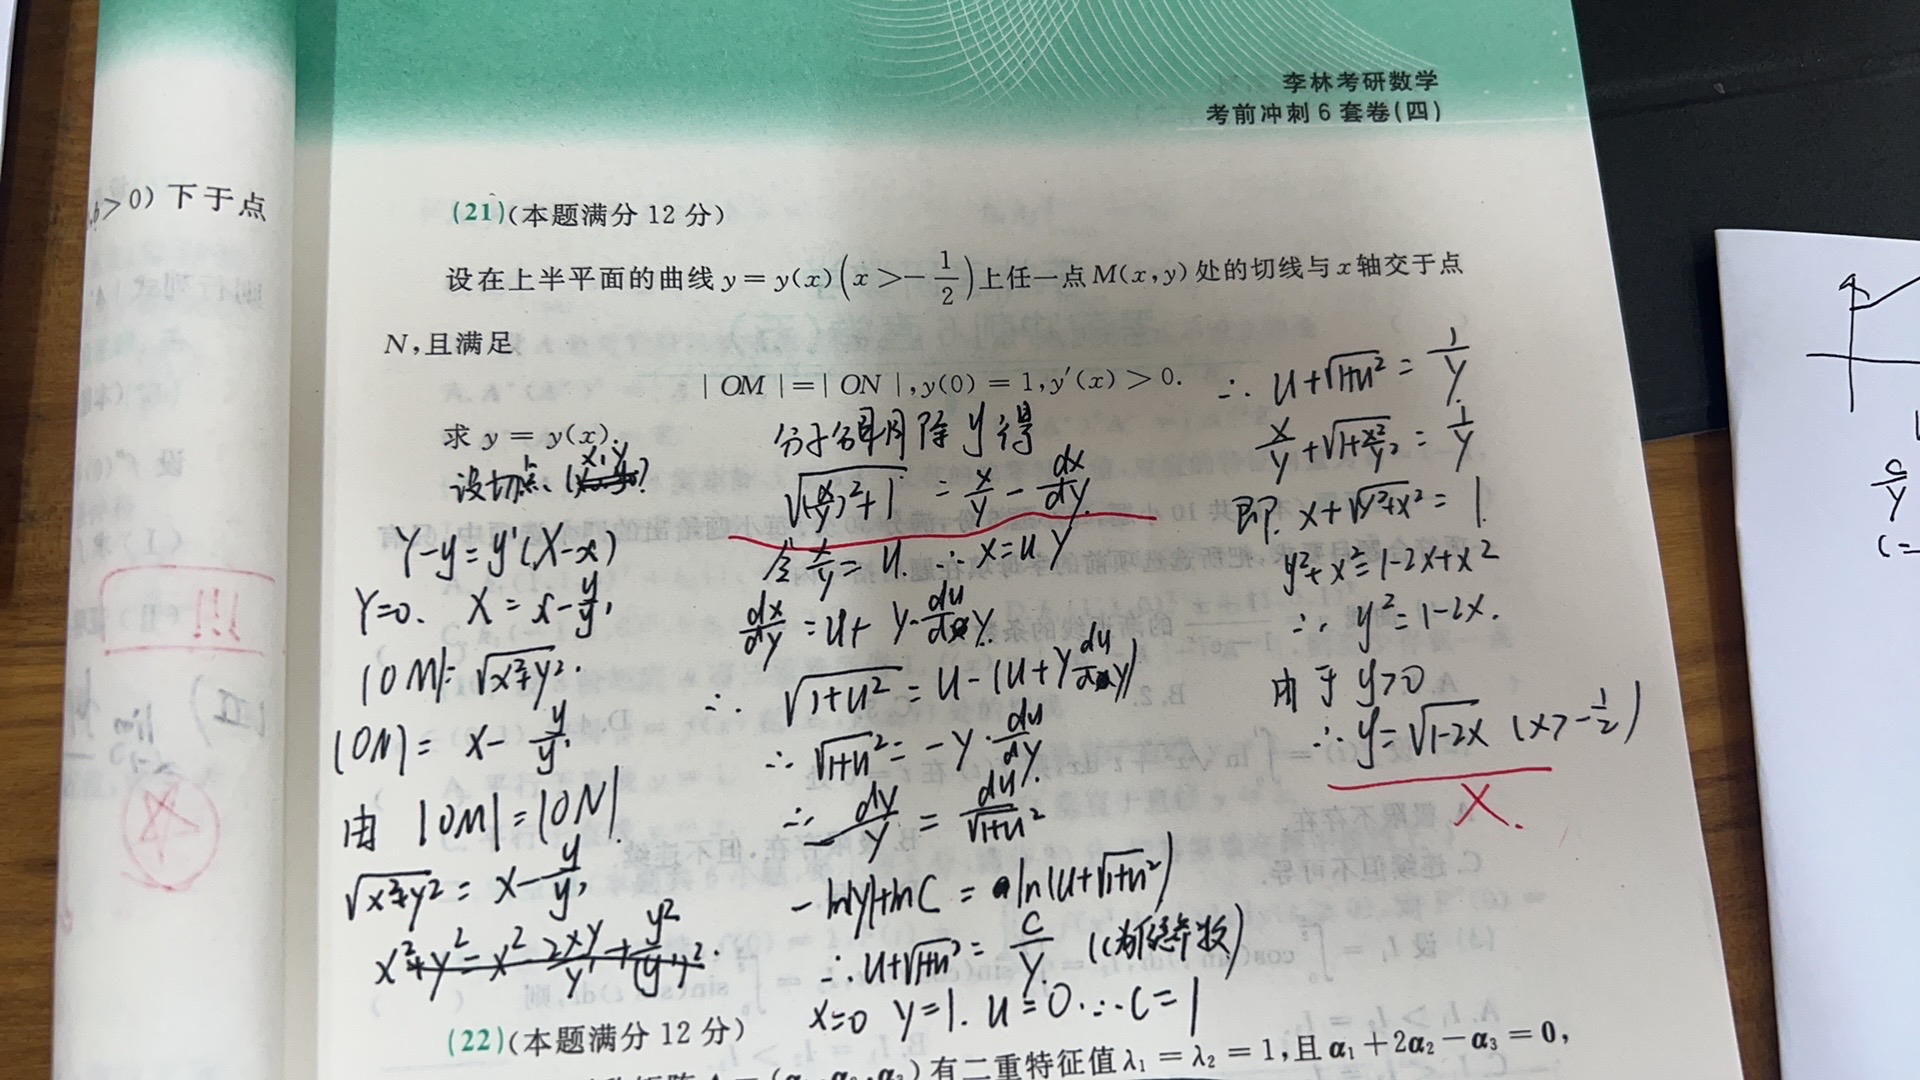 李林考研数学
考前冲刺6套卷(四)
0) 下于点
(21)(本题满分12分)
设在上半平面的曲线 y = y(x)(x > -1/2) 上任一点 M(x,y) 处的切线与 x 轴交于点
N,且满足
| OM | = | ON |, y(0) = 1, y′(x) > 0.
求 y = y(x).
设切点(x,y)
Y-y=y'(X-x)
Y=0. X=x-y/y'
|OM|=√x²+y².
|ON|= x-y/y'
由 |OM|=|ON|.
√x²+y² = x-y/y'
x²+y²=x²-2xy/y'+y²/(y')².
分子分母同除y得
√(x/y)²+1 = x/y - dx/dy.
令x/y=u. ∴x=uy
dx/dy=u+y·du/dy.
∴ √1+u² = u-(u+y du/dy)
∴ √1+u² = -y·du/dy.
∴ -dy/y = du/√1+u²
-ln|y|+lnC = ln(u+√1+u²)
∴ u+√1+u² = C/y
x=0 y=1. u=0.∴C=1
∴ u+√1+u² = 1/y.
x/y+√1+x²/y² = 1/y
即. x+√y²+x² = 1.
y²+x²=1-2x+x²
∴ y²=1-2x.
由于y>0
∴ y=√1-2x (x>-1/2)
X.
(22)(本题满分12分)
有二重特征值 λ₁ = λ₂ = 1,且 α₁ + 2α₂ - α₃ = 0,